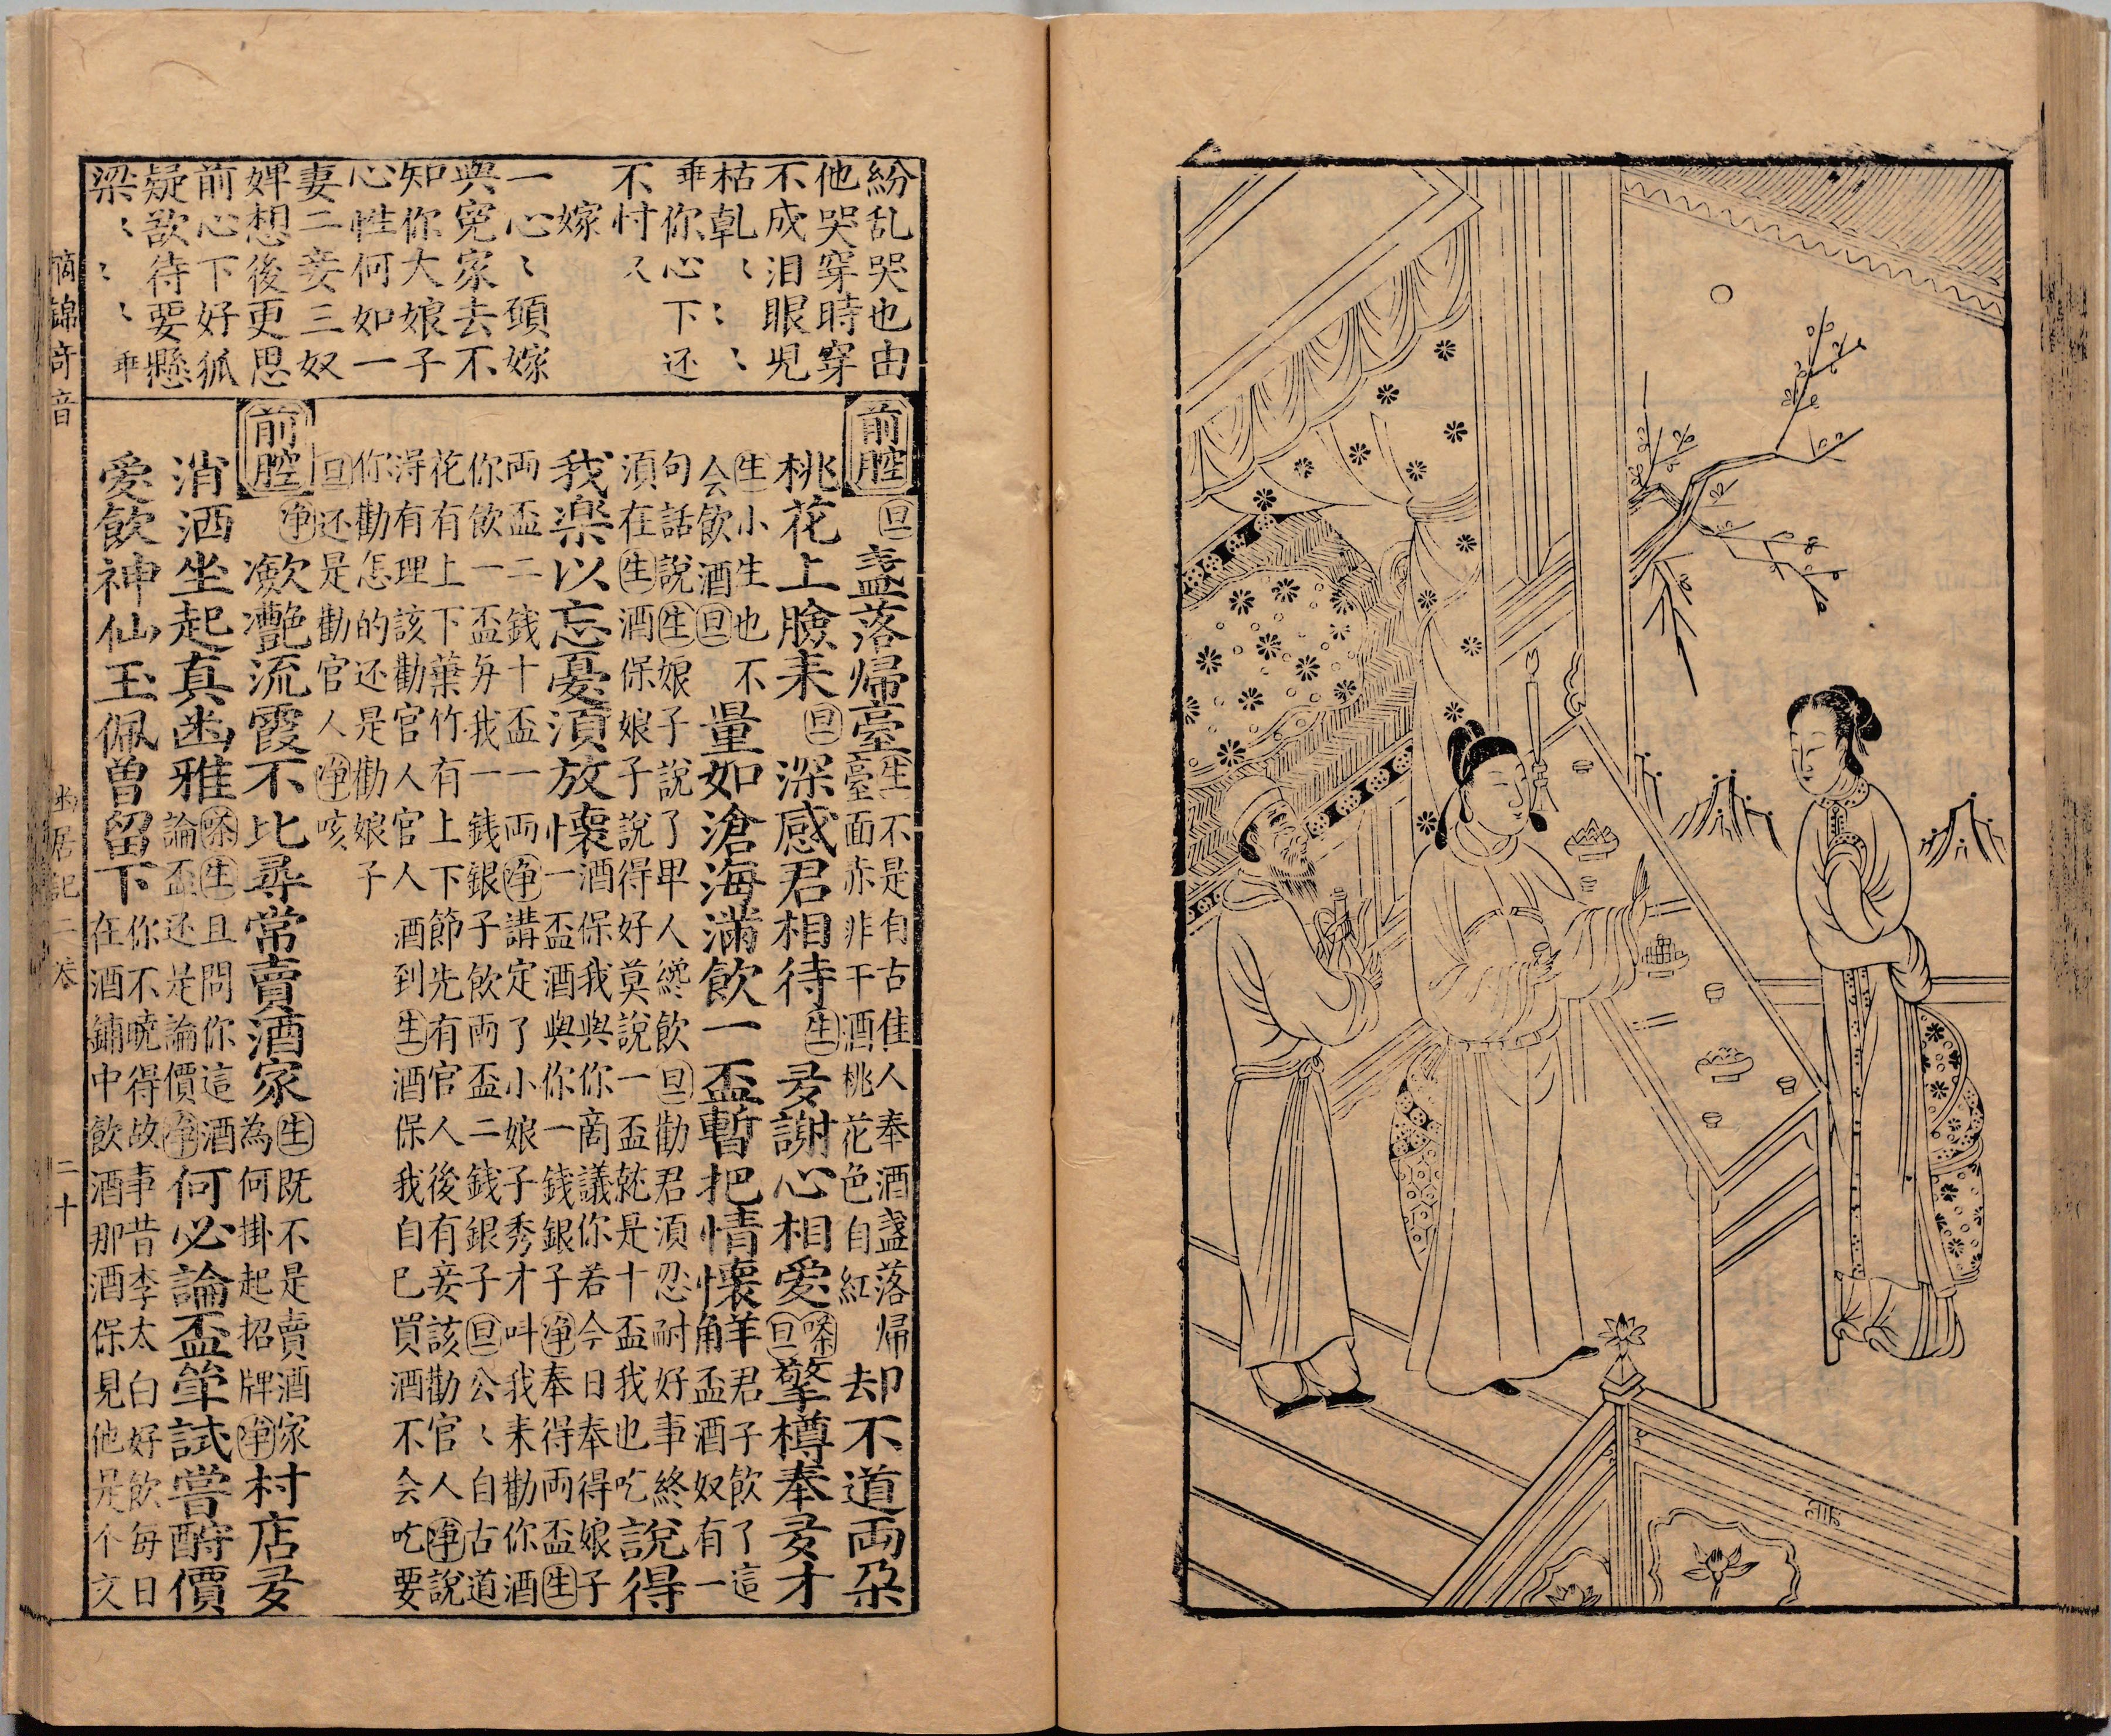 紛乱哭也由
他哭穿時穿
不成泪眼児
枯乹〻〻〻
垂你心下还
不忖又
嫁
一心〻頭嫁
與寃家去不
知你大娘子
心性何如一
妻二妾三奴
婢想後更思
前心下好狐
疑欲待要懸
梁〻〻〻垂
前腔旦盞落帰臺生不是自古佳人奉酒盞落帰臺面赤非干酒桃花色自紅却不道兩朵
桃花上臉来旦深感君相待生多謝心相愛嗏旦擎樽奉多才
生小生也不会飲酒旦量如滄海滿飲一盃暫把情懷觧君子飲了這盃酒奴有一
句話説生娘子説了卑人纔飲旦勸君須忍耐好事終須在生酒保娘子説得好莫説一盃就是十盃我也吃説得
我楽以忘憂須放懷酒保我與你商議你若今日奉得娘子一盃酒與你一錢銀子净奉得兩盃生
兩盃二錢十盃一兩净講定了小娘子秀才叫我来勸你酒
你飲一盃與我一錢銀子飲兩盃二錢銀子旦公〻自古道
花有上下葉竹有上下節先有官人後有妾該勸官人净説
淂有理該勸官人官人酒到生酒保我自已買酒不会吃要
你勸怎的还是勸娘子
旦还是勸官人净咳
前腔净瀲灧流霞不比尋常賣酒家生既不是賣酒家為何掛起招牌净村店多
消洒坐起真幽雅嗏生且問你這酒論盃还是論價净何必論盃筭試嘗酹價
愛飲神仙玉佩曽留下你不曉得故事昔李太白好飲每日在酒鋪中飲酒那酒保見他是个文
摘錦奇音 幽居記二卷 二十